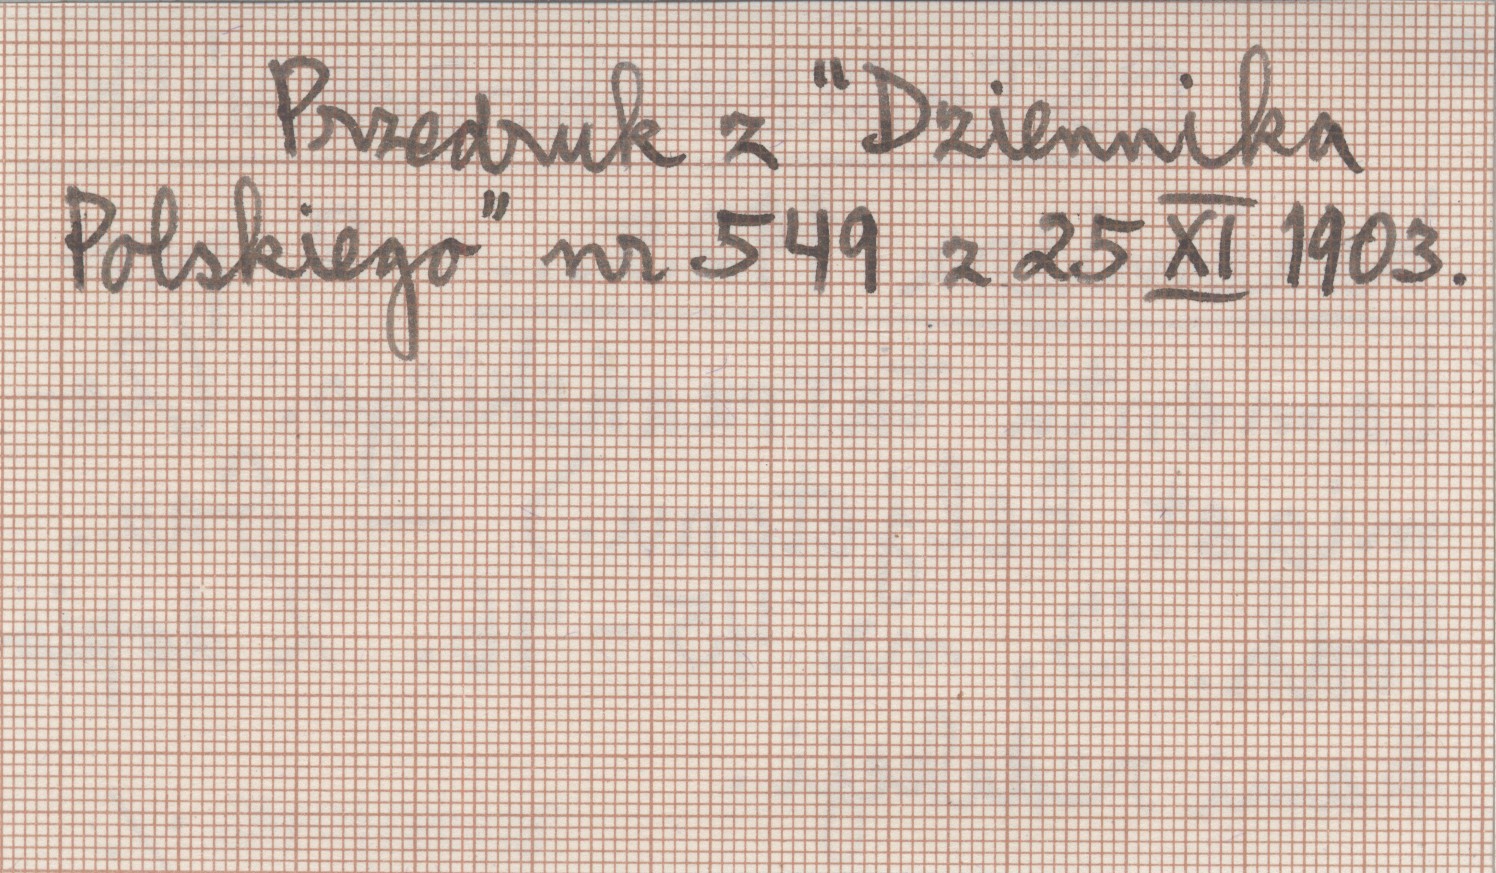 Przedruk z "Dziennika
Polskiego" nr 549 z 25 XI 1903.